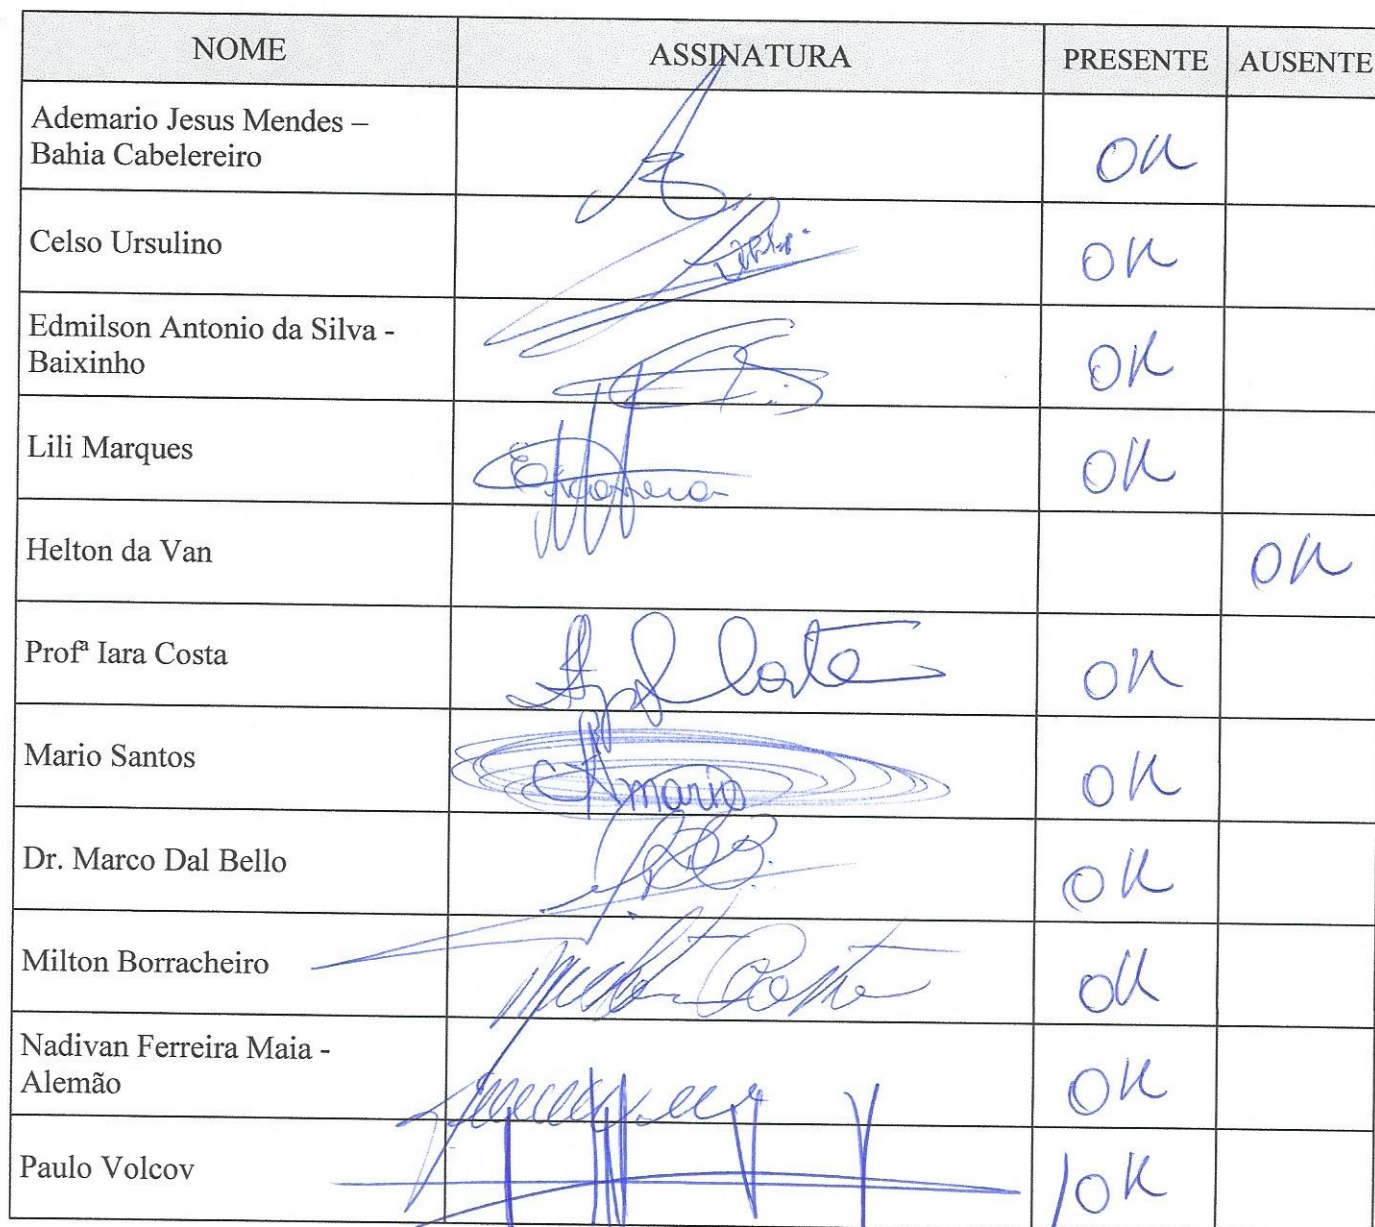 NOME ASSINATURA PRESENTE AUSENTE
Ademario Jesus Mendes –
Bahia Cabelereiro OK
Celso Ursulino OK
Edmilson Antonio da Silva -
Baixinho OK
Lili Marques OK
Helton da Van OK
Profª Iara Costa Costa OK
Mario Santos mario OK
Dr. Marco Dal Bello OK
Milton Borracheiro Milton Costa OK
Nadivan Ferreira Maia -
Alemão OK
Paulo Volcov OK